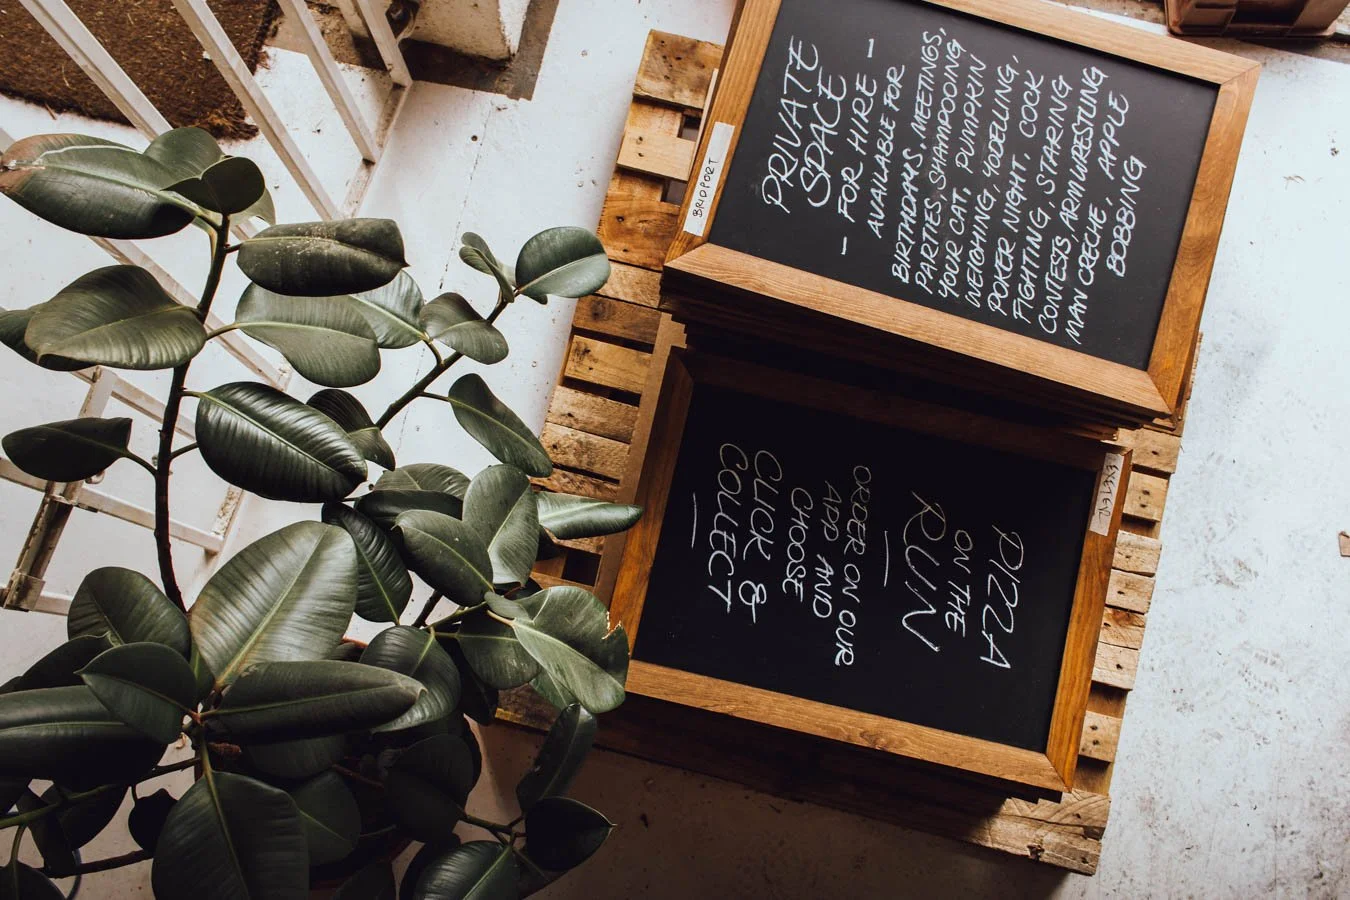 BRIDPORT
PRIVATE
SPACE
- FOR HIRE -
AVAILABLE FOR
BIRTHDAYS, MEETINGS,
PARTIES, SHAMPOOING
YOUR CAT, PUMPKIN
WEIGHING, YODELLING,
POKER NIGHT, COOK
FIGHTING, STARING
CONTESTS ARMWRESTLING
MAN CRECHE, APPLE
BOBBING
EXETER
PIZZA
ON THE
RUN
ORDER ON OUR
APP AND
CHOOSE
CLICK &
COLLECT